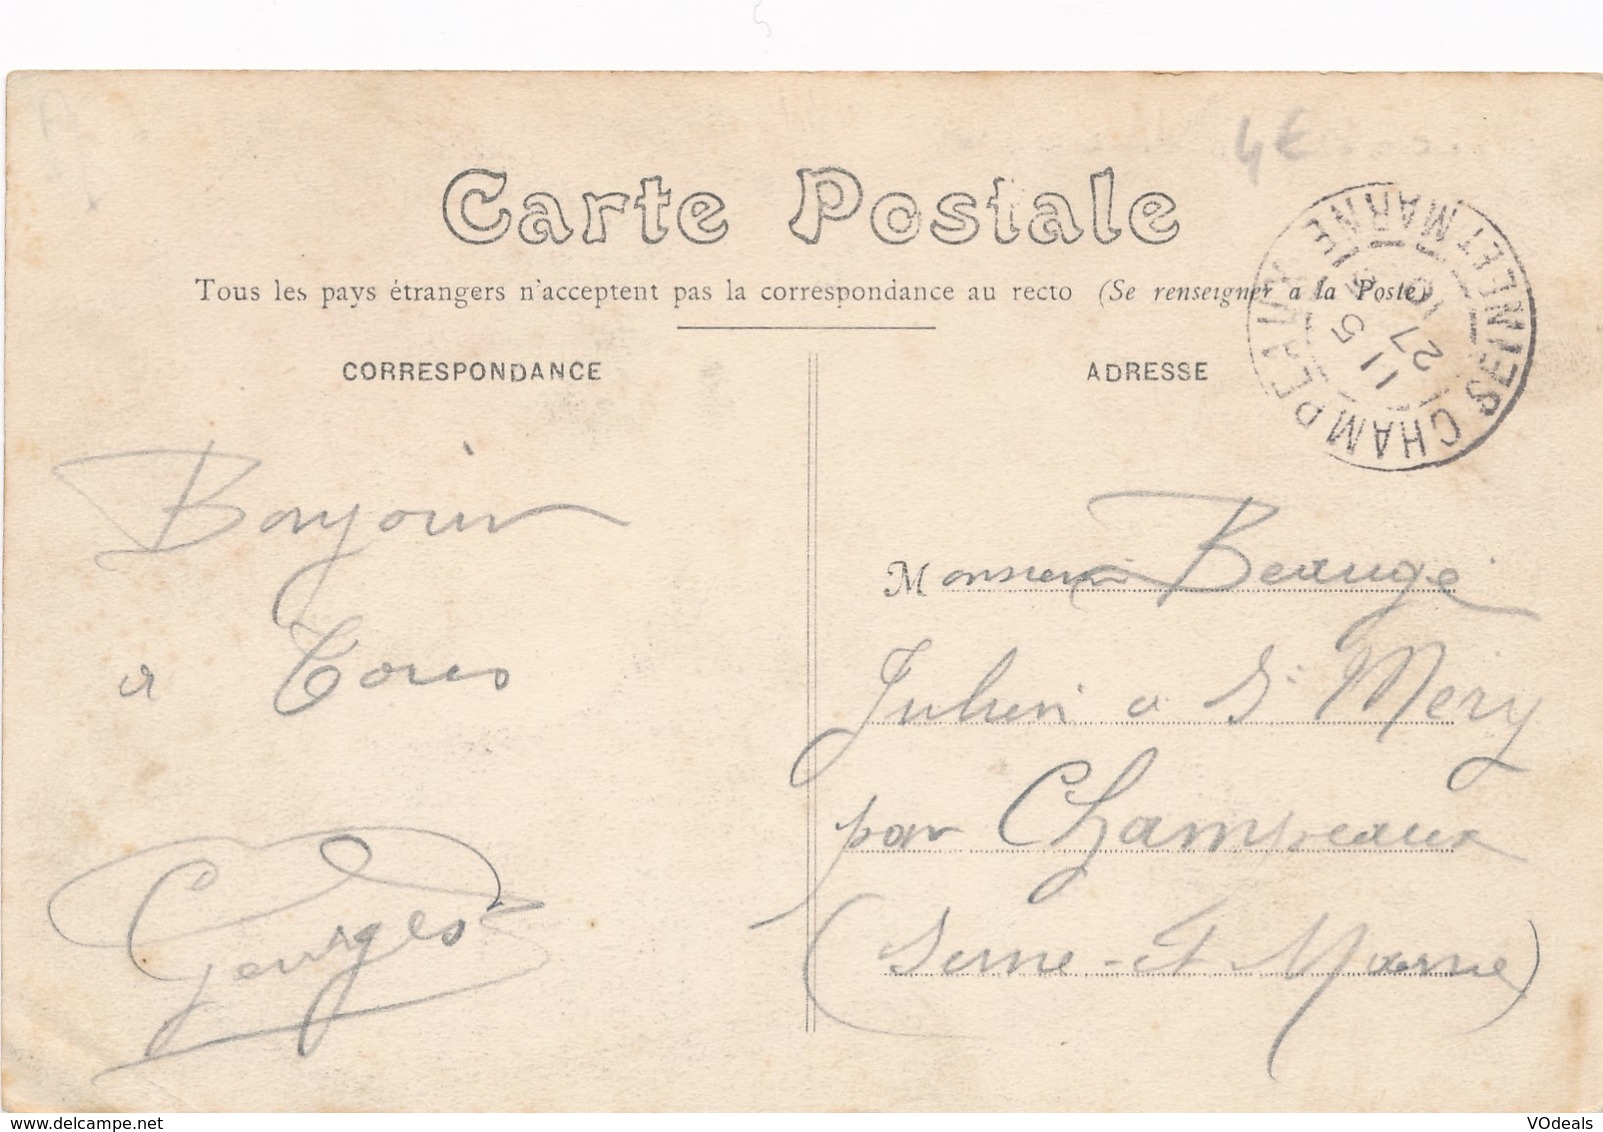 4€
Carte Postale
Tous les pays étrangers n'acceptent pas la correspondance au recto (Se renseigner a la Poste)
CORRESPONDANCE
ADRESSE
CHAMPEAUX
SEINE ET MARNE
11 5
27 10
Bonjour
a Tous
Georges
Monsieur Beaugé
Julien a St Mery
par Champeaux
(Seine-et Marne)
www.delcampe.net
VOdeals